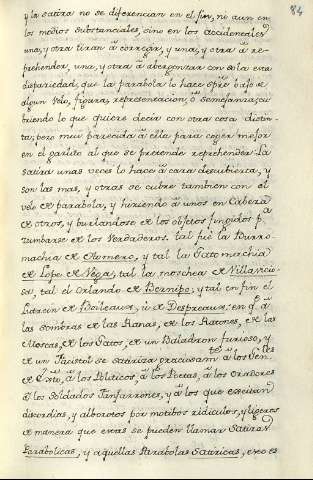 84
y la satira no se diferencian en el fin, ni aun en
los medios substanciales, sino en los accidentales
una, y otra tiran â corregir, y una, y otra â re-
prehender, una, y otra â abergonzar con sola esta
disparidad, que la parabola lo hace spre. bajo de
algun velo, figura, representacion, ô semejanza, cu
briendo lo que quiere decir con otra cosa distin-
ta; pero muy parecida â ella para coger mejor
en el garlito al que se pretende reprehender. La
satira unas veces lo hace â cara descubierta, y
son las mas, y otras se cubre tambien con el
velo de parabola, y hiriendo â unos en cabeza
de otros, y burlandose de los objetos fingidos pª
zumbarse de los verdaderos. tal fuè la Batro-
machia de Homero, y tal la Gatomachia
de Lope de Vega, tal la moschea de Villavicio
sa, tal el Orlando de Bernipo, y tal en fin el
Lutrin de Boileaux, ù de Despreaux: en qe. â
las sombras de las Ranas, de los Ratones, de las
Moscas, de los Gatos, de un Baladron furioso, y
de un Facistol se satiriza graciosamte. â los
â los Politicos, â los Poetas, â los Oradores
â los Soldados fanfarrones, y â los que excitan
discordias, y alborotos por motibos ridiculos, y ligeros
de manera que estas se pueden llamar Satiras
Parabolicas, y aquellas Parabolas Satiricas, esto es